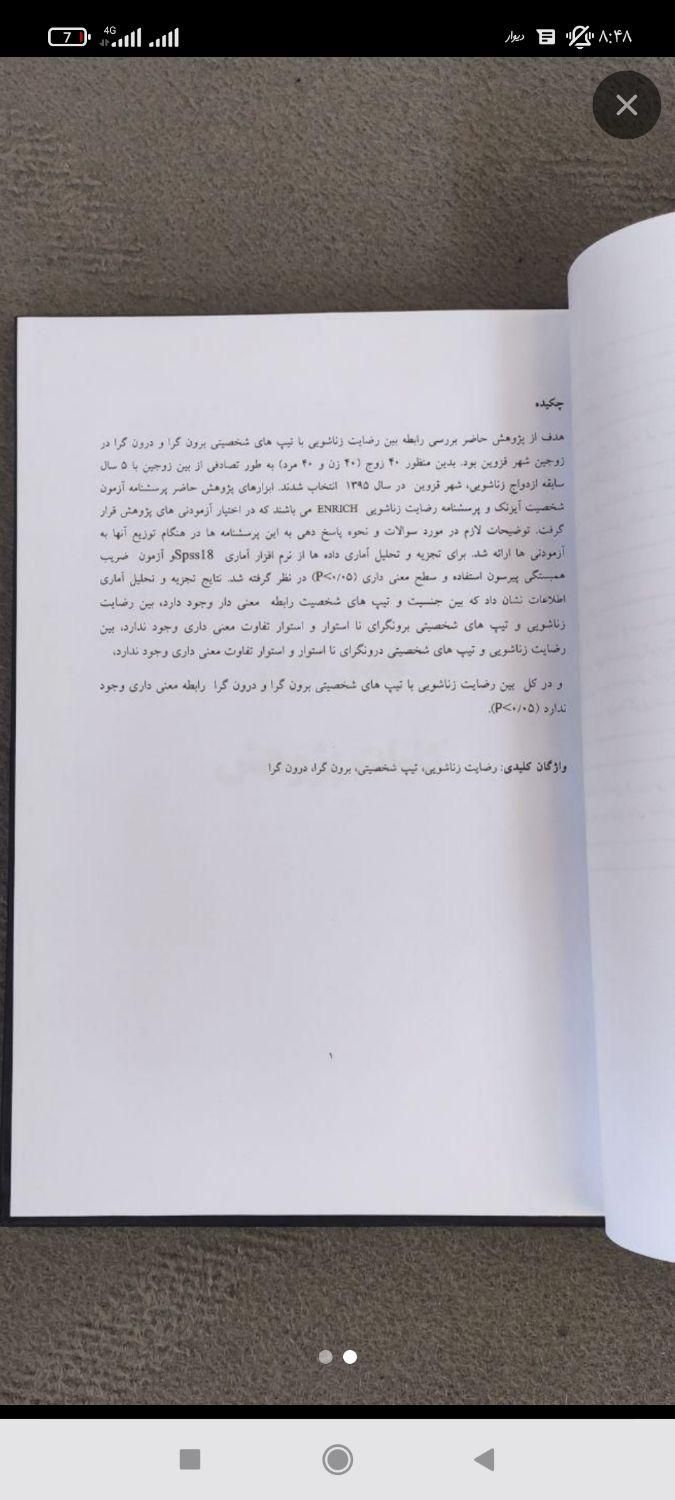 7
4G
دیوار
۸:۴۸
چکیده
هدف از پژوهش حاضر بررسی رابطه بین رضایت زناشویی با تیپ های شخصیتی برون گرا و درون گرا در
زوجین شهر قزوین بود. بدین منظور ۴۰ زوج (۴۰ زن و ۴۰ مرد) به طور تصادفی از بین زوجین با ۵ سال
سابقه ازدواج زناشویی، شهر قزوین در سال ۱۳۹۵ انتخاب شدند. ابزارهای پژوهش حاضر پرسشنامه آزمون
شخصیت آیزنک و پرسشنامه رضایت زناشویی ENRICH می باشند که در اختیار آزمودنی های پژوهش قرار
گرفت. توضیحات لازم در مورد سوالات و نحوه پاسخ دهی به این پرسشنامه ها در هنگام توزیع آنها به
آزمودنی ها ارائه شد. برای تجزیه و تحلیل آماری داده ها از نرم افزار آماری Spss18و آزمون ضریب
همبستگی پیرسون استفاده و سطح معنی داری (P<۰/۰۵) در نظر گرفته شد. نتایج تجزیه و تحلیل آماری
اطلاعات نشان داد که بین جنسیت و تیپ های شخصیت رابطه معنی دار وجود دارد، بین رضایت
زناشویی و تیپ های شخصیتی برونگرای نا استوار و استوار تفاوت معنی داری وجود ندارد، بین
رضایت زناشویی و تیپ های شخصیتی درونگرای نا استوار و استوار تفاوت معنی داری وجود ندارد،
و در کل بین رضایت زناشویی با تیپ های شخصیتی برون گرا و درون گرا رابطه معنی داری وجود
ندارد (P<۰/۰۵).
واژگان کلیدی: رضایت زناشویی، تیپ شخصیتی، برون گرا، درون گرا
۱